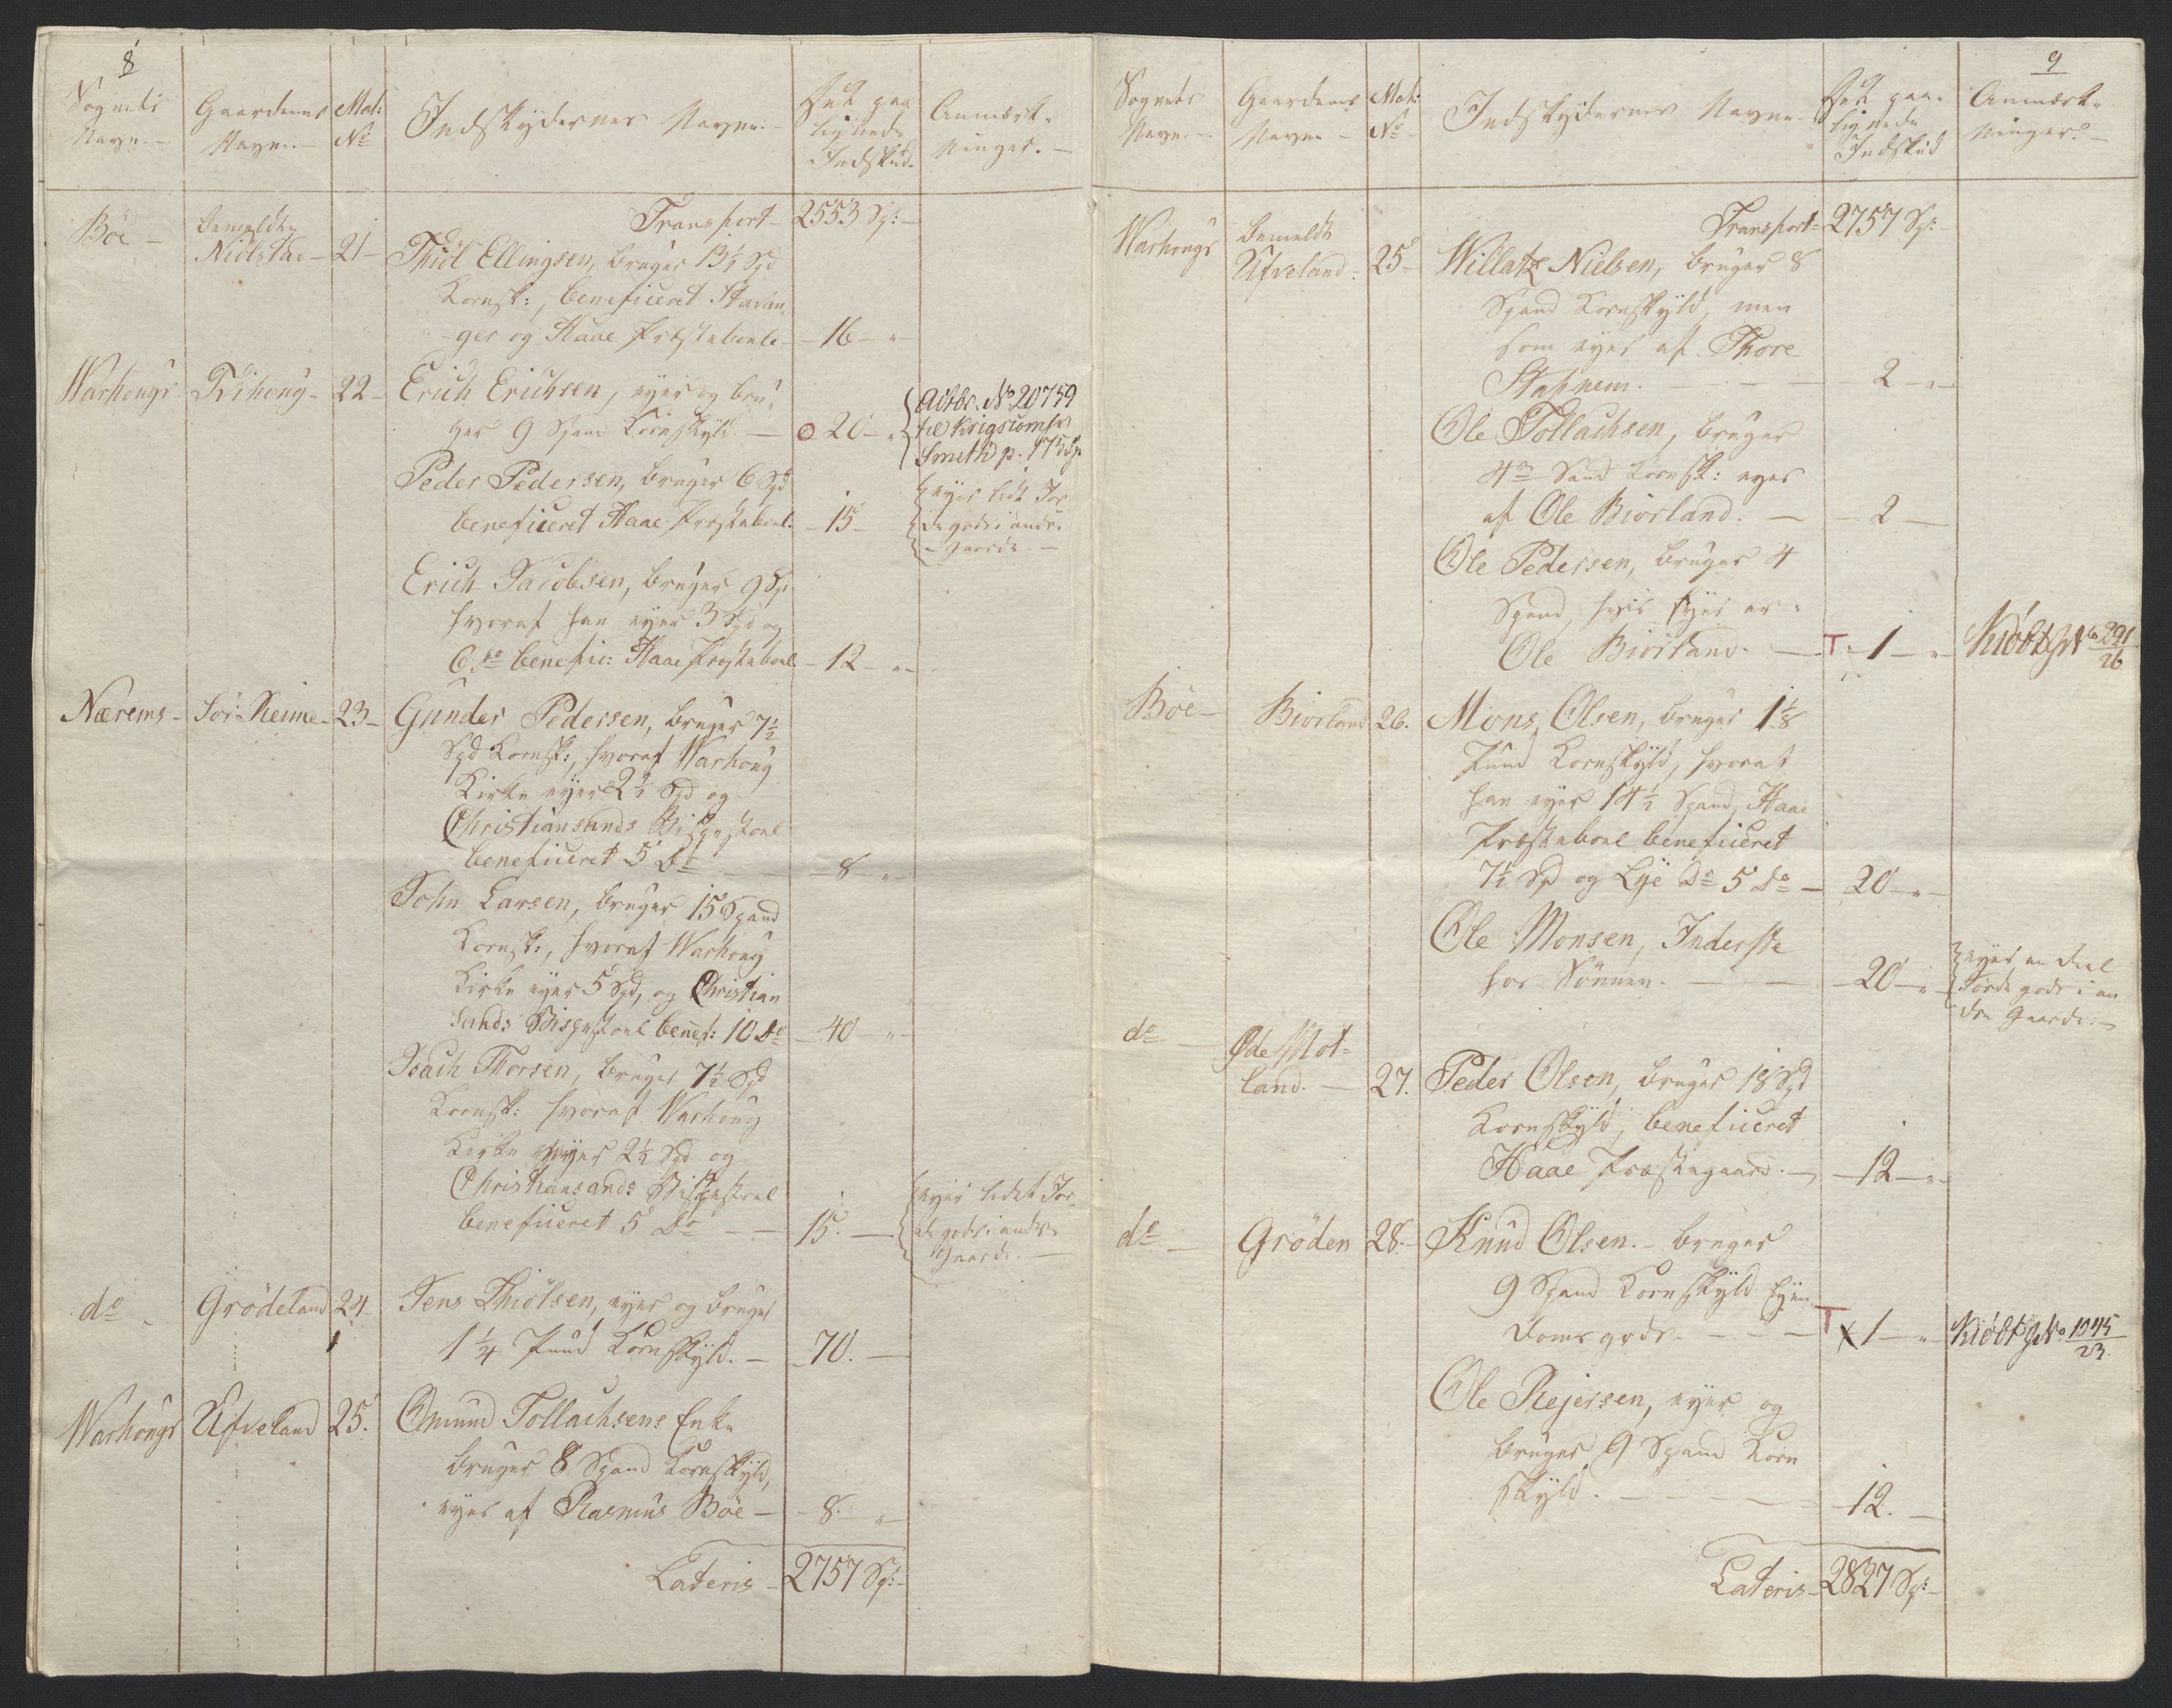 8
Sognets
Navn.
Gaardenes
Navne.
Mat:
No
Indskydernes Navne.
Det paa
lignede
Indskud.
Anmærk-
ninger.
Transport 2553 Sp:
Böe bemeldte
Niölstad 21 Thiöl Ellingsen, bruger 13½ Spd
Kornsk:, beneficeret Stavan
ger og Haae Præstebøele 16
Warhougs Trihoug 22 Erich Erichsen, eyer og bru-
ger 9 Spand Kornskyld 20
Actbr. No 20759
til Krigscomss
Smith p. 175 Sp
Peder Pedersen, bruger 6 Spd
beneficeret Haae Præsteboel. 15
eyer lidt Jor
degods i andre
Gaarde.
Erich Jacobsen, bruger 9 Sp
hvoraf han eyer 3 Spd og
6 do benefic: Haae Præsteboel 12
Nærems Sör-Reime 23 Gunder Pedersen, bruger 7½
Spd Kornsk:, hvoraf Warhoug
Kirke eyer 2½ Spd og
Christiansands Bispestoel
beneficeret 5 Do 8
John Larsen, bruger 15 Spand
Kornsk:, hvoraf Warhoug
Kirke eyer 5 Spd, og Christian
sands Bispestoel benef: 10 Do 40
Isach Thorsen, bruger 7½ Spd
Kornsk: hvoraf Warhoug
Kirke eyer 2½ Spd og
Christiansands Bispestoel
beneficeret 5 Do 15.
eyer lidet Jor-
degods i andre
Gaarde.
do Grödeland 24 Jens Thiölsen, eyer og bruger
1¼ Pund Kornskyld. 70.
Warhougs Ufveland 25. Omund Tollachsens Enke
bruger 8 Spand Kornskyld,
eyes af Rasmus Böe 8.
Lateris 2757 Sp:
9
Sognets
Navn.
Gaardens
Navne
Mat:
No
Indskydernes Navne.
Det paa-
lignede
Indskud
Anmærk-
ninger.
Transport 2757 Sp:
Warhougs bemeldte
Ufveland 25 Willatz Nielsen, bruger 8
Spand Kornskyld, men
som eyes af Thore
Stapnem. 2
Ole Tollachsen, bruger
4re Spand Kornsk: eyes
af Ole Biorland. 2
Ole Pedersen, bruger 4
Spand, hvis Eyer er
Ole Biorland. T 1 Kiöbt No 291/26
Böe Biorland 26. Mons Olsen, bruger 1⅛
Pund Kornskyld, hvoraf
han eyer 14½ Spand, Haae
Præsteboel beneficeret
7½ Spd og Lye Do 5 Do 20
Ole Monsen, Inderste
hos Sönnen. 20
eyer en Deel
Jordegods i an
dre Gaarde.
do Øde Mot-
land. 27. Peder Olsen, bruger 18 Spd
Kornskyld, beneficeret
Haae Præstegaard. 12
do Gröden 28. Knud Olsen. bruger
9 Spand Kornskyld Eyen
doms gods. T x 1 Kiöbt No 1045/23.
Ole Rejersen, eyer og
bruger 9 Spand Korn
skyld. 12.
Lateris 2827 Sp: